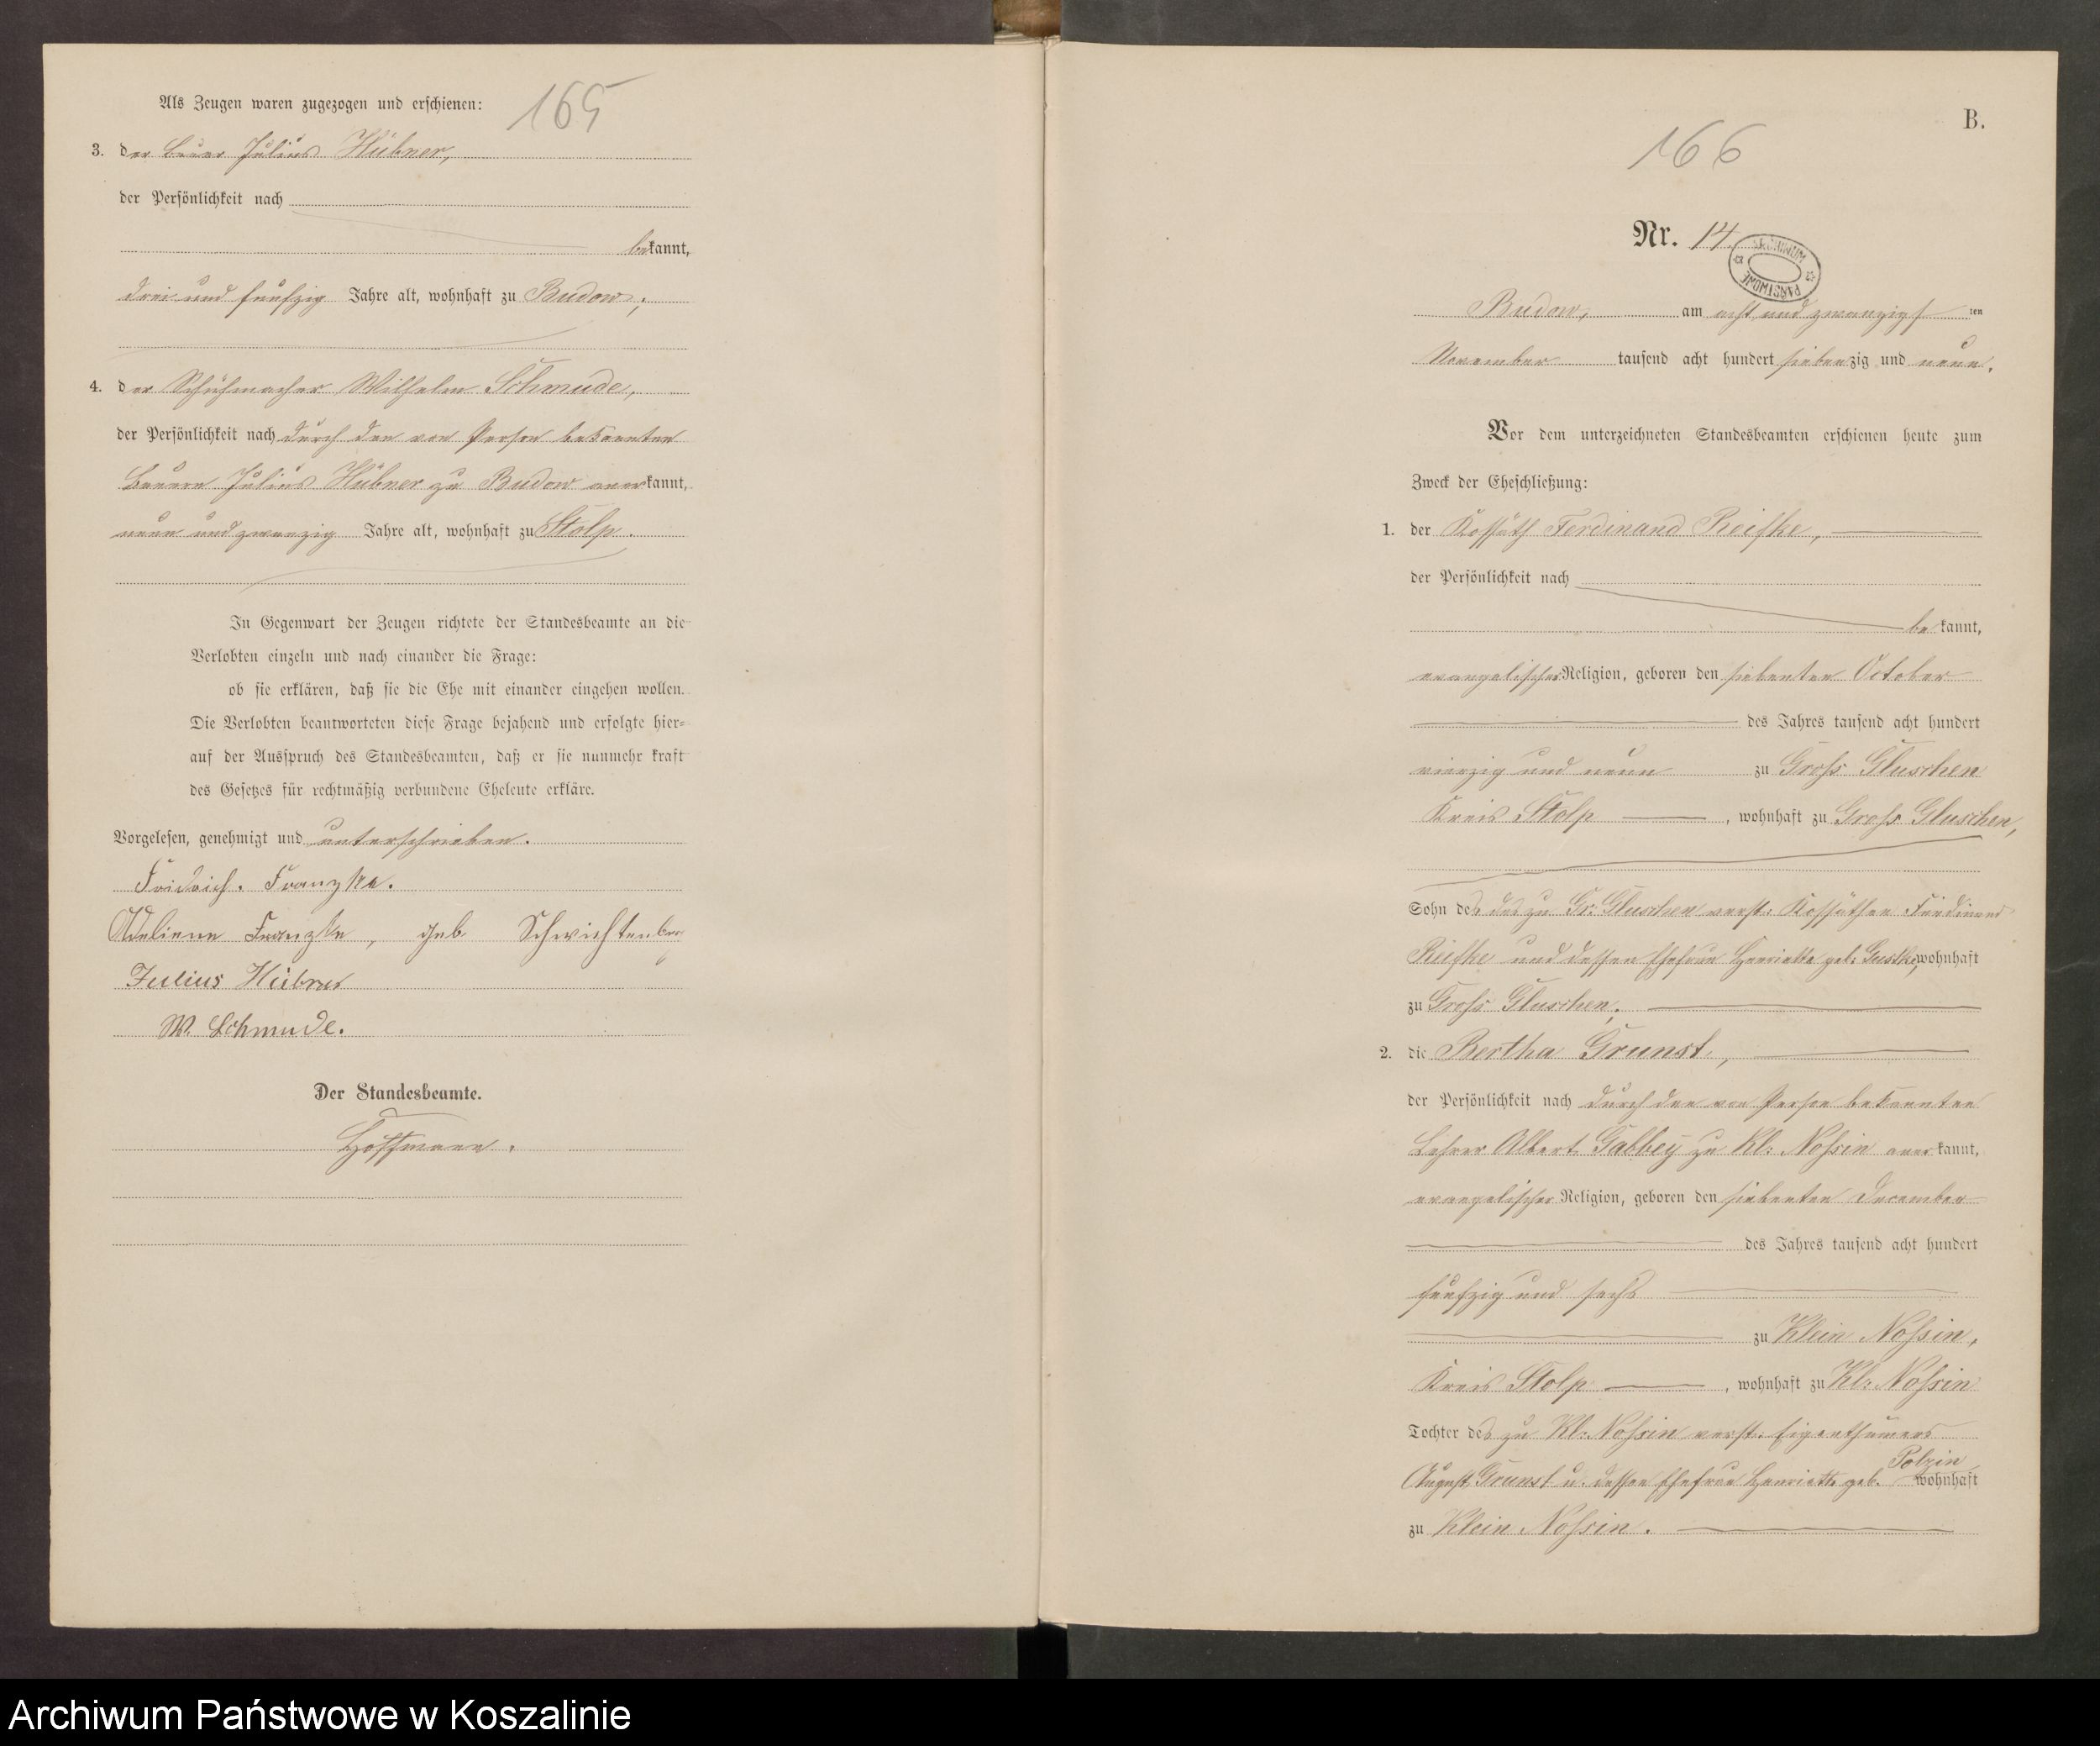 Als Zeugen waren zugezogen und erschienen:
165
3. der Bauer Julius Hübner,
der Persönlichkeit nach
bekannt,
drei und fünfzig Jahre alt, wohnhaft zu Budow;
4. der Schuhmacher Wilhelm Schmude,
der Persönlichkeit nach durch den von Person bekannten
Bauern Julius Hübner zu Budow anerkannt,
neun und zwanzig Jahre alt, wohnhaft zu Stolp.
In Gegenwart der Zeugen richtete der Standesbeamte an die
Verlobten einzeln und nach einander die Frage:
ob sie erklären, daß sie die Ehe mit einander eingehen wollen.
Die Verlobten beantworteten diese Frage bejahend und erfolgte hier-
auf der Ausspruch des Standesbeamten, daß er sie nunmehr kraft
des Gesetzes für rechtmäßig verbundene Eheleute erkläre.
Vorgelesen, genehmigt und unterschrieben.
Fridrich. Franzke.
Franzke, geb. Schwichtenberg
Julius Hübner
W. Schmude.
Der Standesbeamte.
Hoffmann.
B.
166
Nr. 14.
ARCHIWUM PAŃSTWOWE
Budow, am acht und zwanzigsten
November tausend acht hundert siebenzig und neun.
Vor dem unterzeichneten Standesbeamten erschienen heute zum
Zweck der Eheschließung:
1. der Kossäth Ferdinand Reifke,
der Persönlichkeit nach
bekannt,
evangelischer Religion, geboren den siebenten October
des Jahres tausend acht hundert
vierzig und neun zu Gross Gluschen
Kreis Stolp, wohnhaft zu Gross Gluschen,
Sohn des des zu Gr: Gluschen verst: Kossäthen Ferdinand
Reifke und dessen Ehefrau Henriette geb: Guske, wohnhaft
zu Gross Gluschen;
2. die Bertha Grunst,
der Persönlichkeit nach durch den von Person bekannten
Lehrer Albert Gabbey zu Kl: Nossin anerkannt,
evangelischer Religion, geboren den siebenten December
des Jahres tausend acht hundert
fünfzig und sechs
zu Klein Nossin,
Kreis Stolp, wohnhaft zu Kl: Nossin
Tochter des zu Kl: Nossin verst: Eigenthümers
August Grunst u. dessen Ehefrau Henriette geb. Polzin, wohnhaft
zu Klein Nossin.
Archiwum Państwowe w Koszalinie